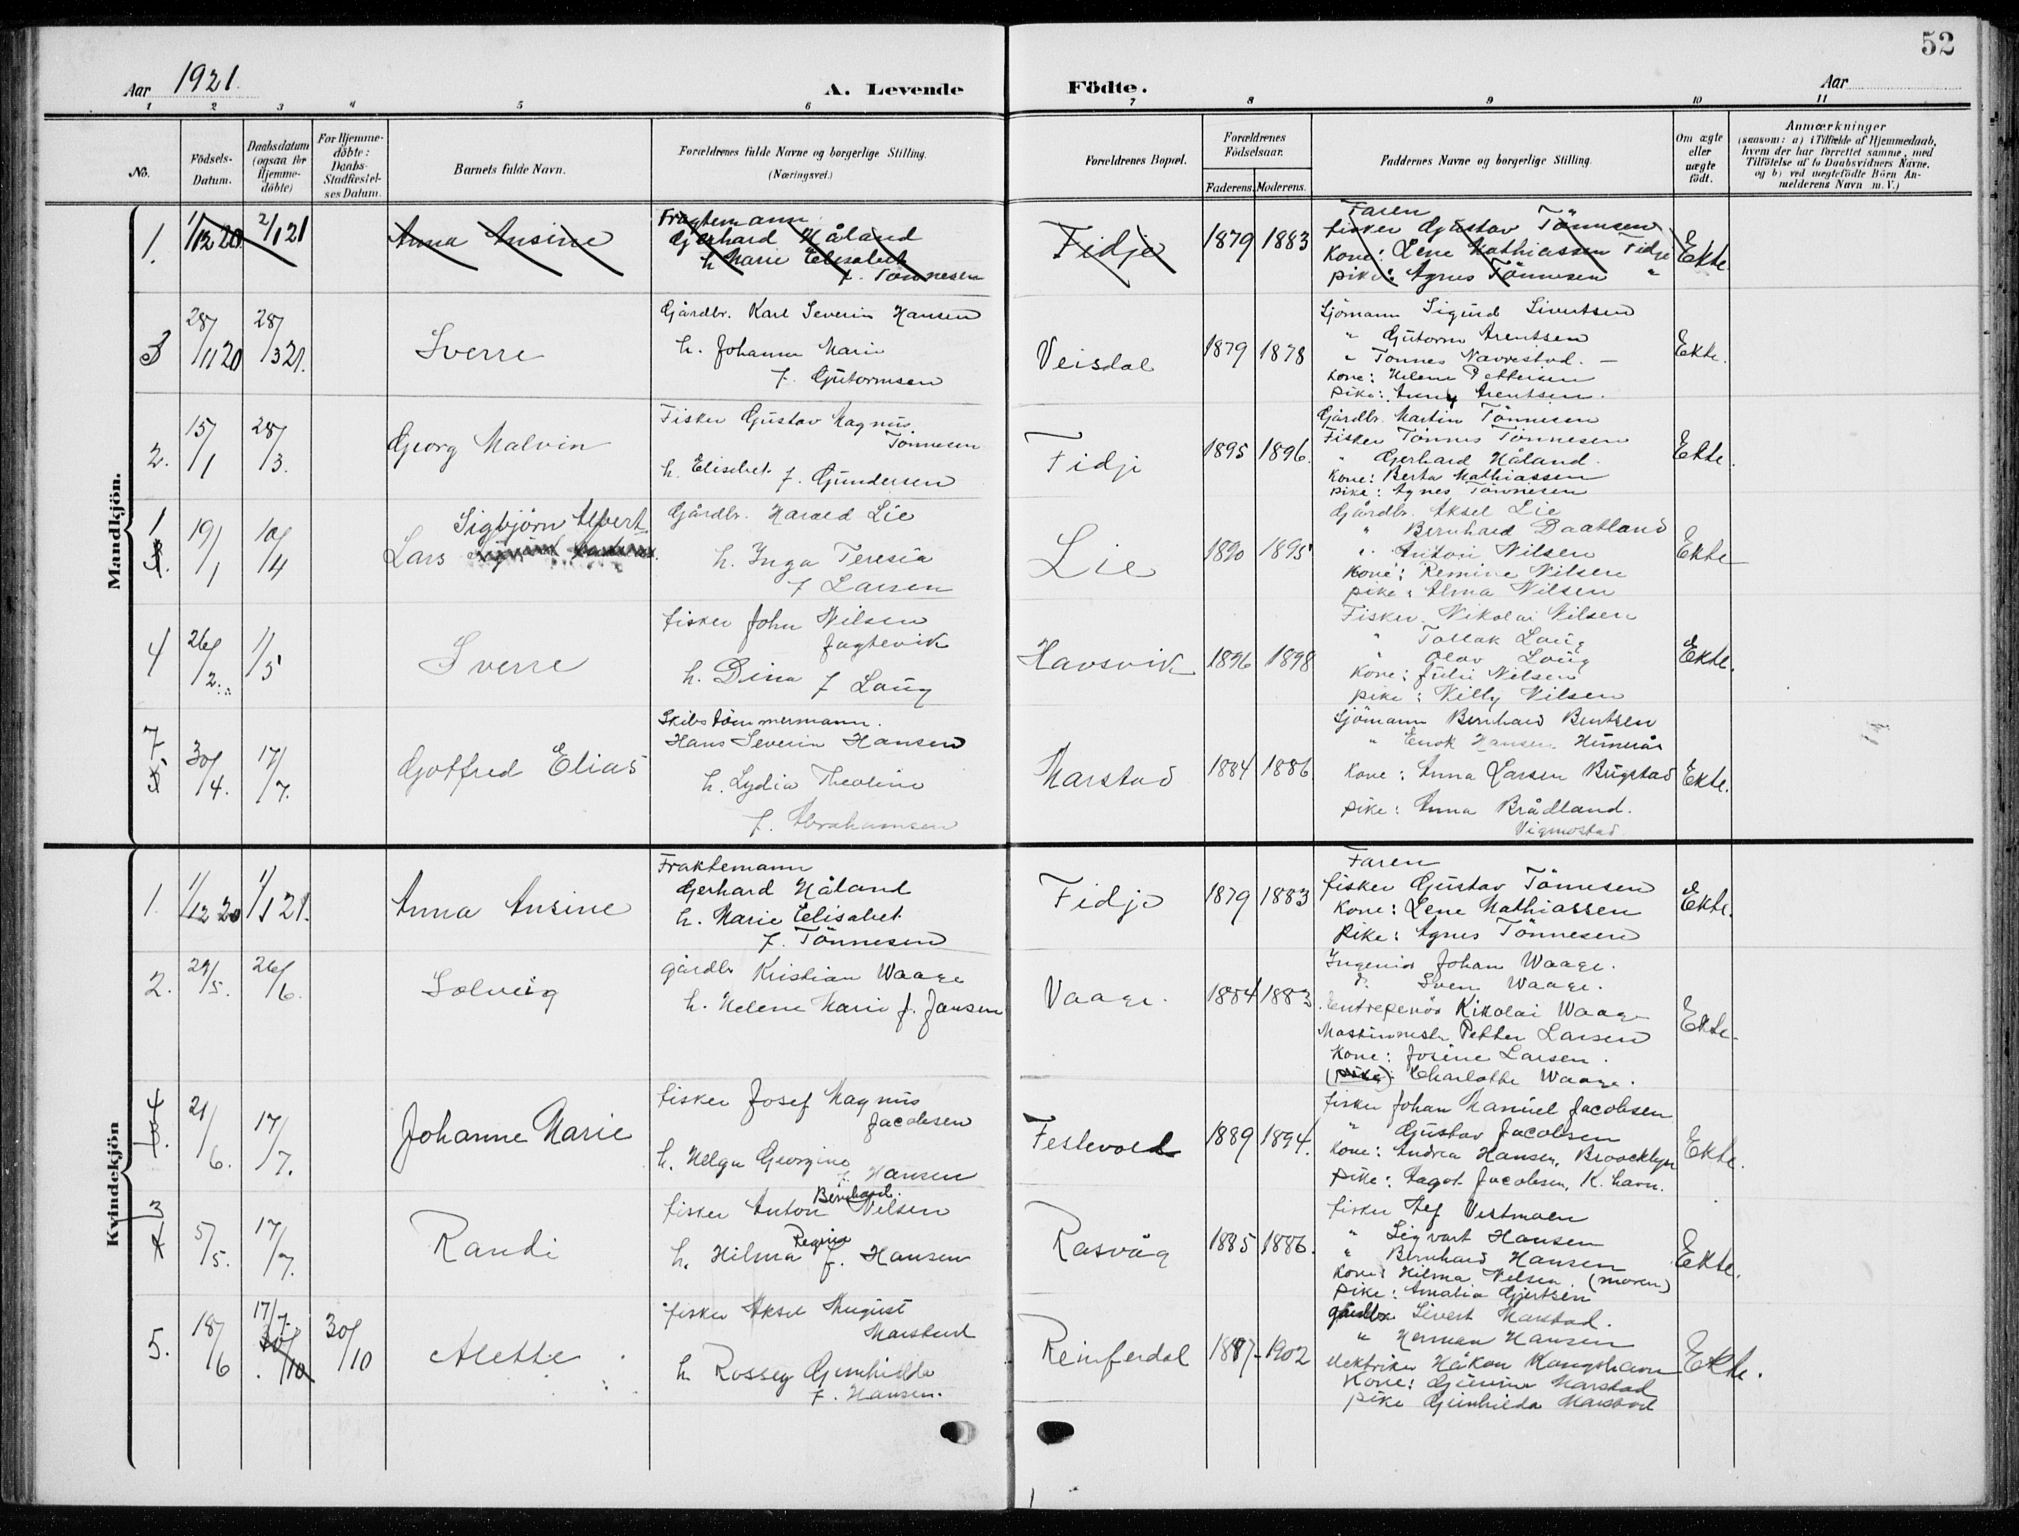 52
Aar 1921.
A. Levende Födte.
Aar
1 2 3 4 5 6 7 8 9 10 11
No.
Födsels-Datum.
Daabsdatum (ogsaa for Hjemme-döbte)
For Hjemme-döbte: Daabs-Stadfæstel-ses Datum.
Barnets fulde Navn.
Forældrenes fulde Navne og borgerlige Stilling. (Næringsvei.)
Forældrenes Bopæl.
Forældrenes Födselsaar.
Faderens. Moderens.
Faddernes Navne og borgerlige Stilling.
Om ægte eller uægte födt.
Anmærkninger
(saasom: a) i Tilfælde af Hjemmedaab, hvem der har forrettet samme, med Tilföielse af to Daabsvidners Navne. og b) ved uægtefödte Börn An-melderens Navn m. V.)
Mandkjön.
1. 1/12 20 2/1 21 Anna Ansine
Fragtemann
Gerhard Håland
h. Marie Elisabeth
f. Tönnesen
Fidje 1879 1883
Faren
fisker Gustav Tönnesen
Kone: Lene Mathiassen Fidje
pike: Agnes Tönnesen "
Ekte.
3 28/11 20 28/3 21. Sverre
Gårdbr. Karl Severin Hansen
h. Johanne Marie
f. Gutormsen
Veisdal 1879 1878
Sjömann Sigurd Sivertsen
" Gutorm Arentsen
" Tönnes Navrestad. —
Kone: Helene Pettersen
Pike: Anny Arentsen.
Ekte.
2. 15/1 28/3. Georg Malvin
Fisker Gustav Magnus
Tönnesen
h. Elisebet f. Gundersen
Fidje 1895 1896.
Gårdbr. Martin Tönnesen
Fisker Tönnes Tönnesen
" Gerhard Håland.
Kone: Berta Mathiassen
pike: Agnes Tönnesen
Ekte.
1 3. 19/1 10/4 Lars Sigbjörn Albert
Gårdbr. Harald Lie
h. Inga Teresia
f Larsen
Lie 1890 1895
Gårdbr. Aksel Lie
" Bernhard Daatland
" Anton Nilsen
Kone: Remine Nilsen
pike: Alma Nilsen
Ekte
4 26/2. 1/5 Sverre
fisker John Nilsen
Jagtevik
h. Dina f Laug
Havsvik 1896 1898
Fisker Nikolai Nilsen
" Tollak Laug
" Olav Laug
Kone: Julie Nilsen
pike: Nilly Nilsen
Ekte.
7 5 30/4. 17/7. Gotfred Elias
Skibstömmermann.
Hans Severin Hansen
h. Lydia Theoline
f. Abrahamsen
Marstad 1884 1886
Sjömann Bernhard Bentsen
" Enok Hansen
Kone: Anna Larsen Bugstad
pike: Anna Brådland.
Vigmostad
Ekte.
Kvindekjön
1. 1/12 20 1/1 21. Anna Ansine
Fraktemann
Gerhard Håland
h. Marie Elisabet
f. Tönnesen
Fidje 1879 1883
Faren
fisker Gustav Tönnesen
Kone: Lene Mathiassen
Pike: Agnes Tönnesen
Ekte.
2. 29/5. 26/6. Solveig
gårdbr Kristian Waage
h. Helene Marie f. Jansen
Vaage. 1884 1883
Ingeniör Johan Waage.
Sven Waage.
Entrepenör Nikolai Waage
Maskinmstr Petter Larsen
Kone: Josine Larsen.
(pike) Charlotte Waage.
Ekte.
4 3. 21/6. 17/7. Johanne Marie
fisker Josef Magnus
Jacobsen
h. Helga Georgine
f. Hansen
Festevold 1889 1894.
fisker Johan Manuel Jacobsen
" Gustav Jacobsen
Kone: Andrea Hansen, Broocklyn
Pike: Aagot Jacobsen, K. havn.
Ekte.
3 4 5/5. 17/7. Randi
fisker Anton Bernhard Nilsen
h. Hilma Regine f. Hansen
Rasvåg 1885 1886.
fisker Alf Vestmoen
" Sigvart Hansen
" Bernhard Hansen
Kone: Hilma Nilsen. (moren)
Pike: Amalia Gjertsen
Ekte.
5. 18/6 17/7. 30/10 30/10 Alette
fisker Aksel August
Marstad
h. Rossey Gunhilde
f. Hansen.
Reinferdal 1887 1902
gårdbr Sivert Marstad.
" Herman Hansen
elektriker Håkon Kongshavn
Kone: Gunine Marstad
pike Gunhilda Marstad
Ekte.